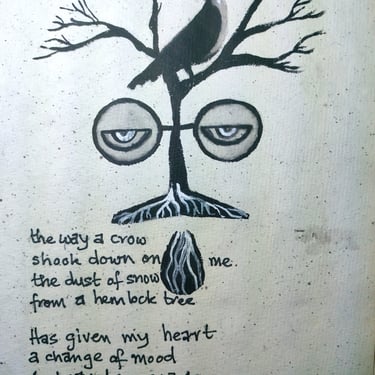 the way a crow
shook down on me.
the dust of snow
from a hemlock tree
Has given my heart
a change of mood